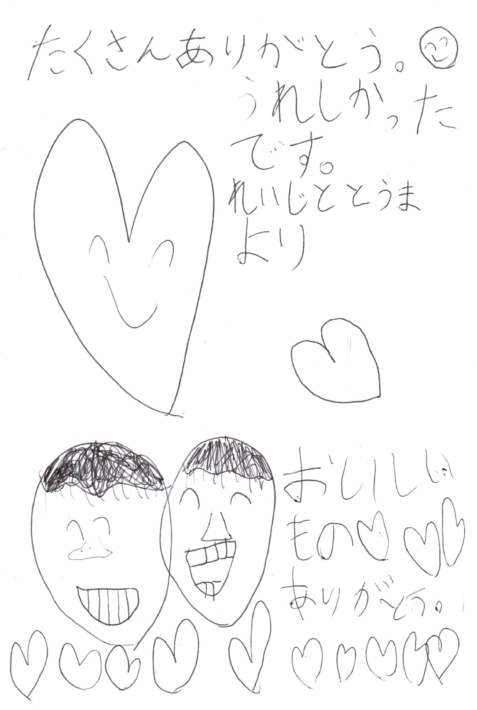 たくさんありがとう。
うれしかった
です。
れいじととうま
より
おいしい
もの
ありがとう。